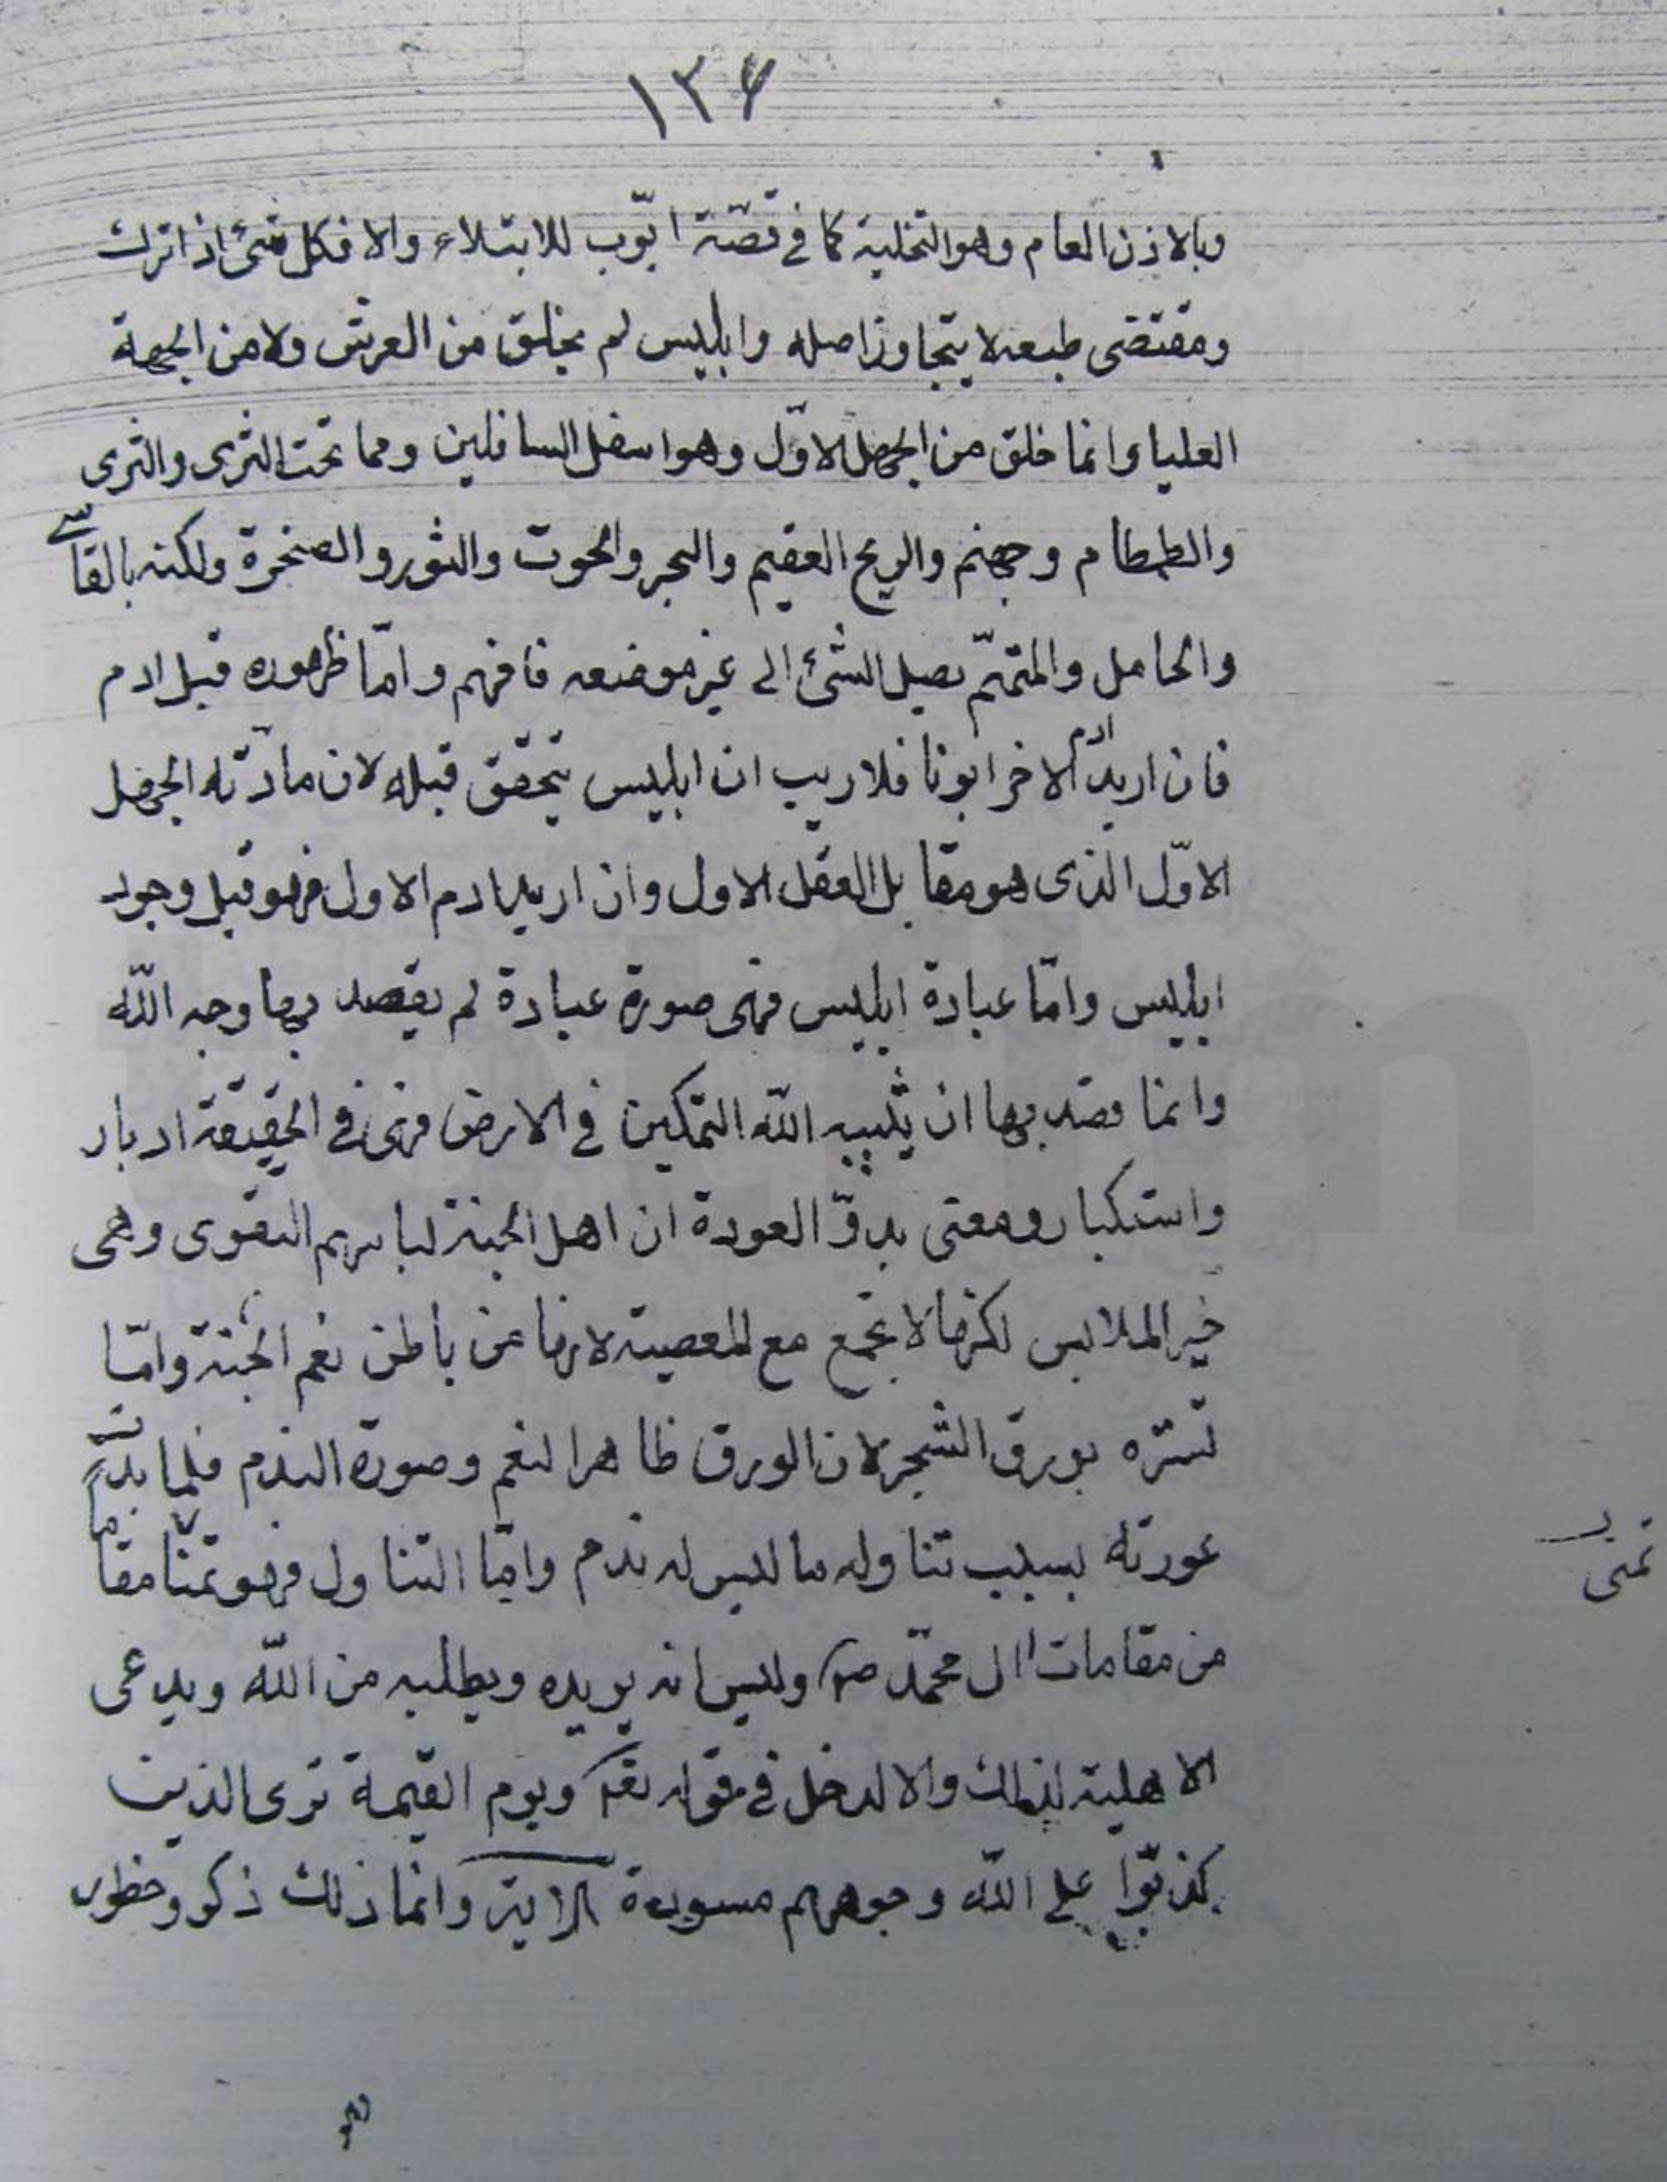 ١٣٦
وبالاذن العام وهو التخلية كما فى قصّة ايّوب للابتلاء والا فكل شئ اذا ترك
ومقتضى طبعه لا يتجاوز اصله وابليس لم يخلق من العرش ولا من الجهة
العليا وانما خلق من الجهل الاوّل وهو اسفل السافلين ومما تحت الثرى والثرى
والطمطام وجهنم والريح العقيم والبحر والحوت والثور والصخرة ولكنه بالقاسى
والحامل والمتمّم يصل الشئ الى غير موضعه فافهم وامّا ظهوره قبل ادم
فان اريد ادم الاخر ابونا فلا ريب ان ابليس يتحقق قبله لان مادّته الجهل
الاوّل الذى هو مقابل العقل الاول وان اريد ادم الاول فهو قبل وجود
ابليس وامّا عبادة ابليس فهى صورة عبادة لم يقصد بها وجه اللّه
وانما قصد بها ان يثيبه اللّه التمكين فى الارض فهى فى الحقيقة ادبار
واستكبار ومعنى بدوّ العورة ان اهل الجنة لباسهم التقوى وهى
خير الملابس لكنها لا تجمع مع المعصية لانها من باطن نعم الجنة وامّا
تستره بورق الشجر لان الورق ظاهر النعم وصورة الندم فلما بدت
عورته بسبب تناوله ما ليس له ندم وامّا التناول فهو تمنّا مقاما
تمنى
من مقامات ال محمّد ص وليس انه يريده ويطلبه من اللّه ويدعى
الاهلية لذلك والا لدخل فى قوله تع ويوم القيمة ترى الذين
كذبوا على اللّه وجوههم مسودة الاية وانما ذلك ذكر وخطور